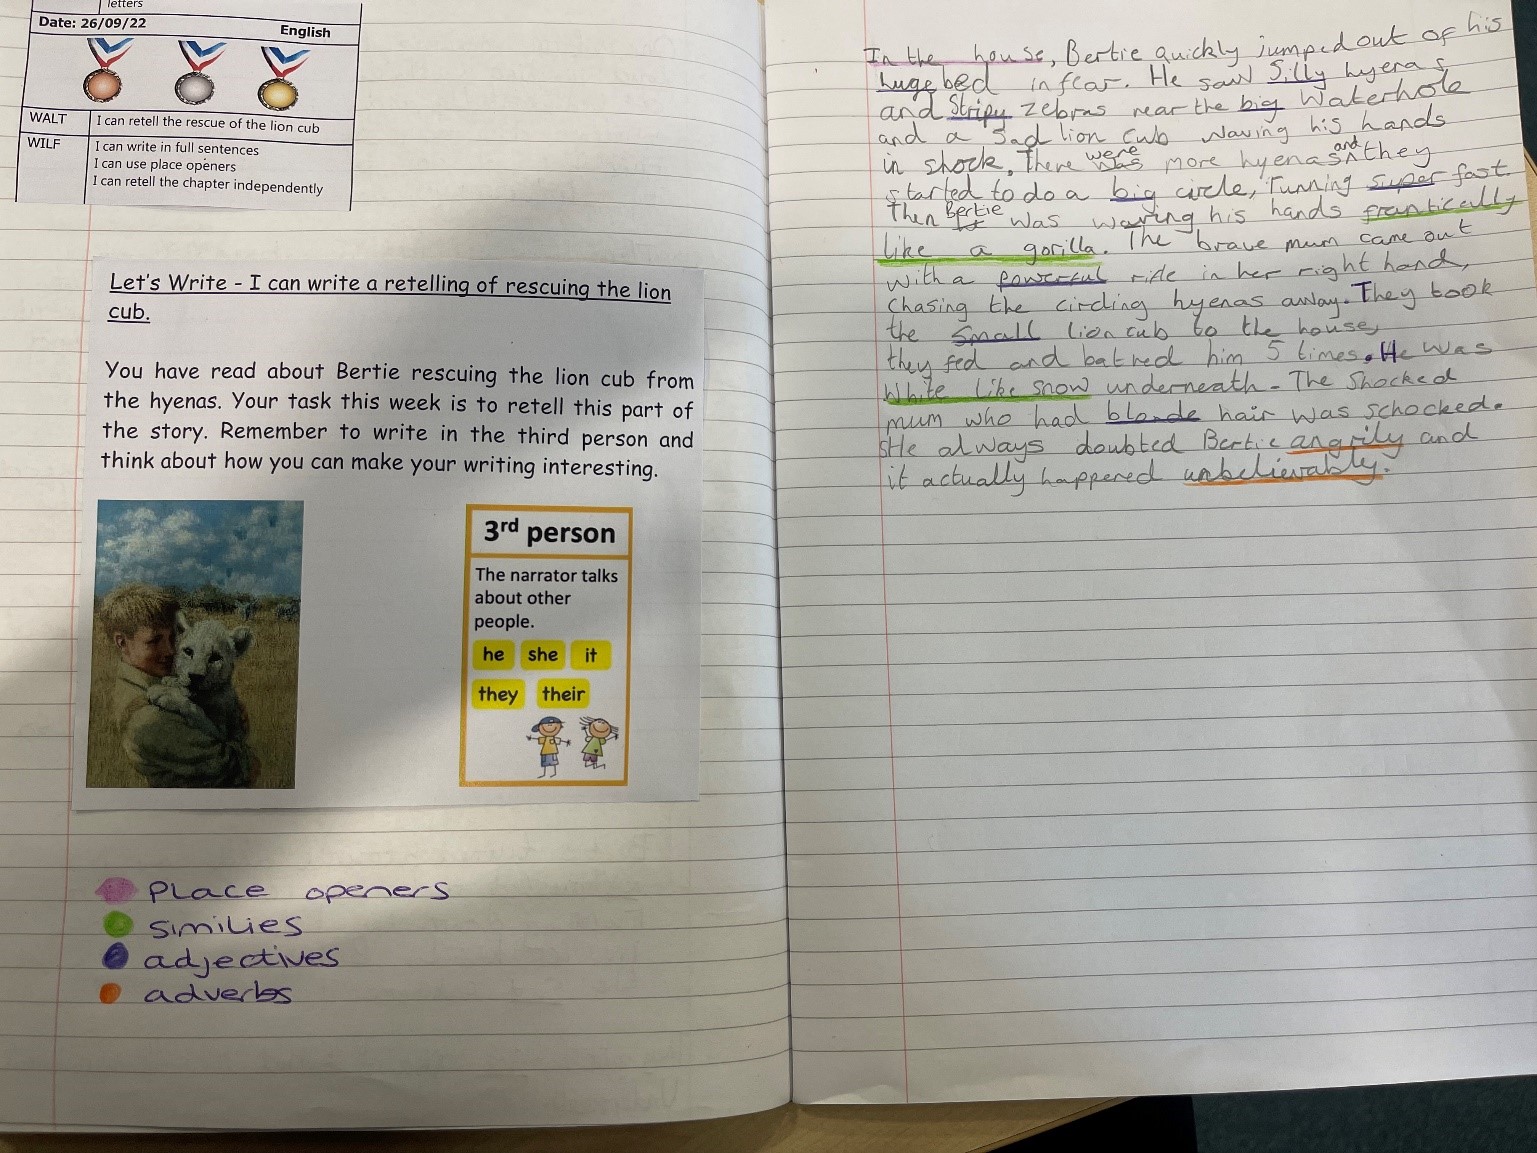 letters
Date: 26/09/22 English
WALT I can retell the rescue of the lion cub
WILF I can write in full sentences
I can use place openers
I can retell the chapter independently
Let's Write - I can write a retelling of rescuing the lion
cub.
You have read about Bertie rescuing the lion cub from
the hyenas. Your task this week is to retell this part of
the story. Remember to write in the third person and
think about how you can make your writing interesting.
3rd person
The narrator talks
about other
people.
he she it
they their
Place openers
similies
adjectives
adverbs
In the house, Bertie quickly jumped out of his
huge bed in fear. He saw Silly hyenas
and Stripy zebras near the big Waterhole
and a Sad lion cub waving his hands
in shock. There were was more hyenas and they
started to do a big circle, running super fast.
Then Bertie was waving his hands frantically
like a gorilla. The brave mum came out
with a powerful rifle in her right hand,
chasing the circling hyenas away. They took
the small lion cub to the house,
they fed and bathed him 5 times. He was
White like snow underneath. The Shocked
mum who had blonde hair was schocked.
SHe always doubted Bertie angrily and
it actually happened unbelievably.